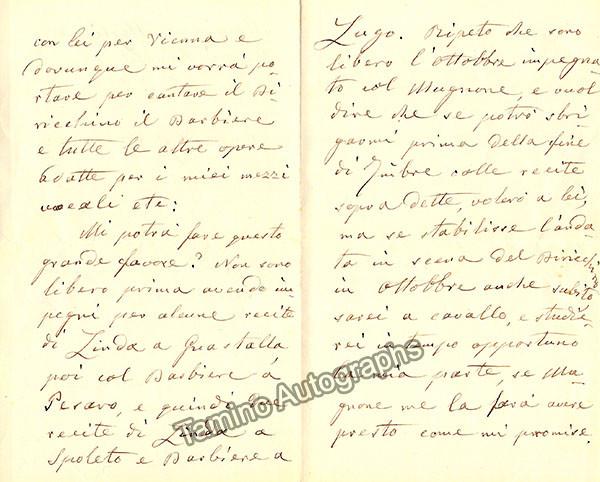 con lei per Vienna e
dovunque mi vorrà po=
tare per cantare il Bi=
ricchino il Barbiere
e tutte le altre opere
adatte per i miei mezzi
vocali etc:
Mi potrà fare questo
grande favore? Non sono
libero prima avendo im=
pegni per alcune recite
di Linda a Guastalla
poi col Barbiere á
Pesaro, e quindi tre
recite di Linda a
Spoleto e Barbiere a
Lugo. Ripeto che sono
libero l'ottobre impegna=
to col Mugnone, e vuol
dire che se potrò sbri=
garmi prima della fine
di 7mbre colle recite
sopra dette, volerò a lei,
ma se stabilisse l'anda=
ta in scena del Biricchino
in ottobre anche subito
sarei a cavallo, e studie=
rei in tempo opportuno
la mia parte, se Mu=
gnone me la farà avere
presto come mi promise.
Tamino Autographs